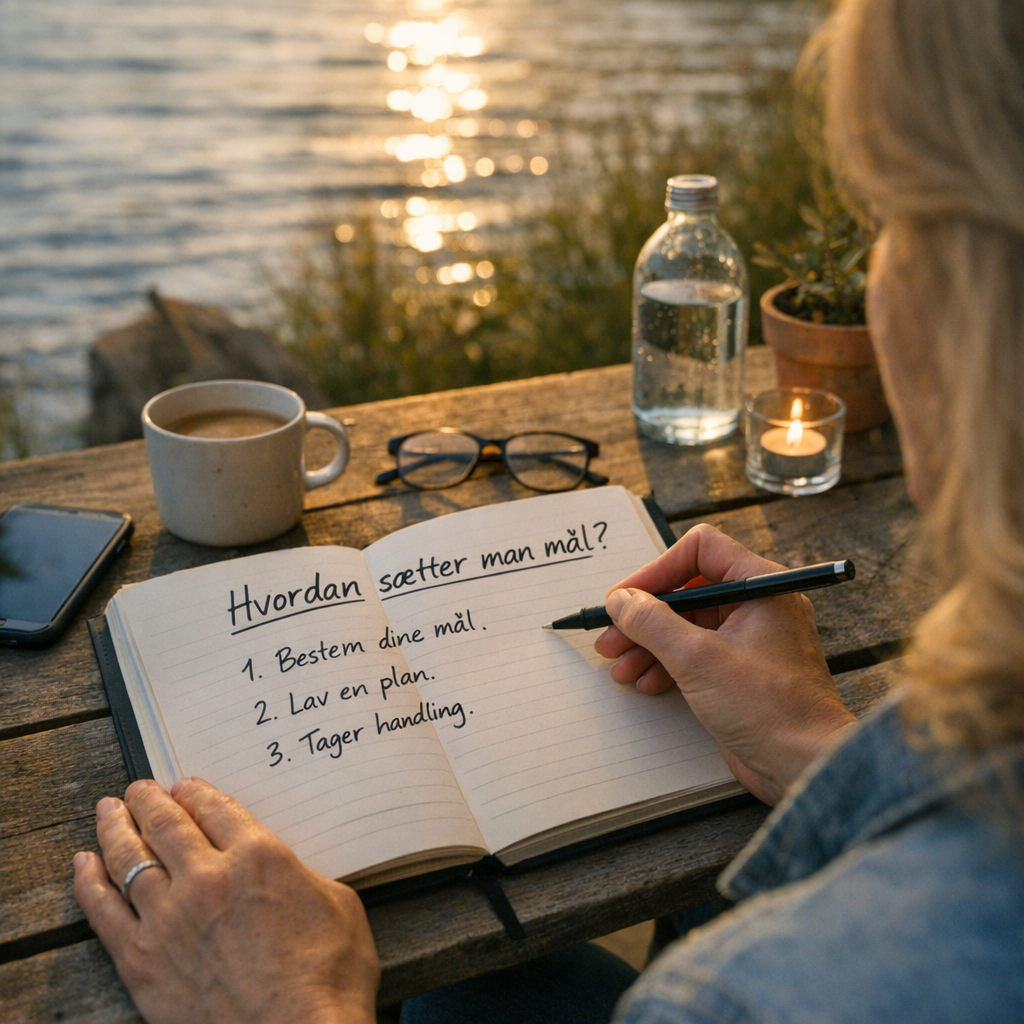 Hvordan sætter man mål?
1. Bestem dine mål.
2. Lav en plan.
3. Tager handling.